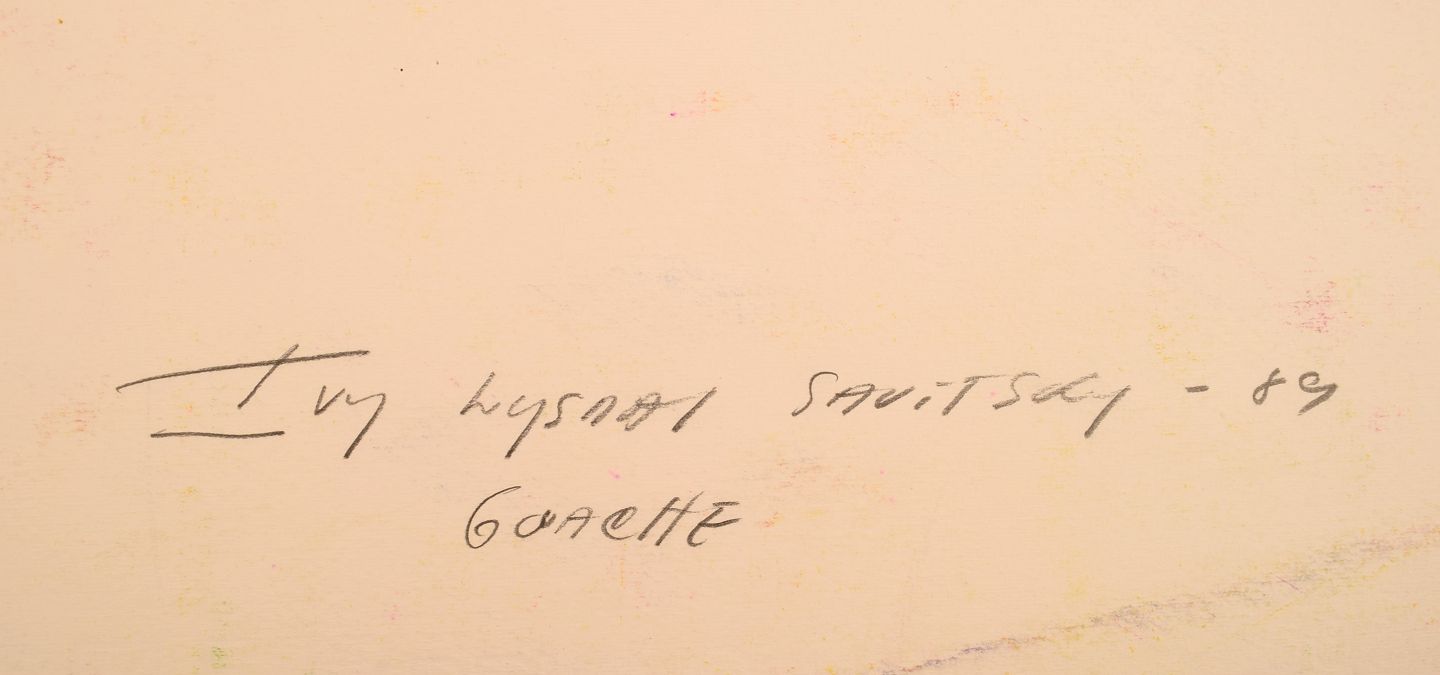 Ivy Lysdal SAViTSky - 89
GouACHE